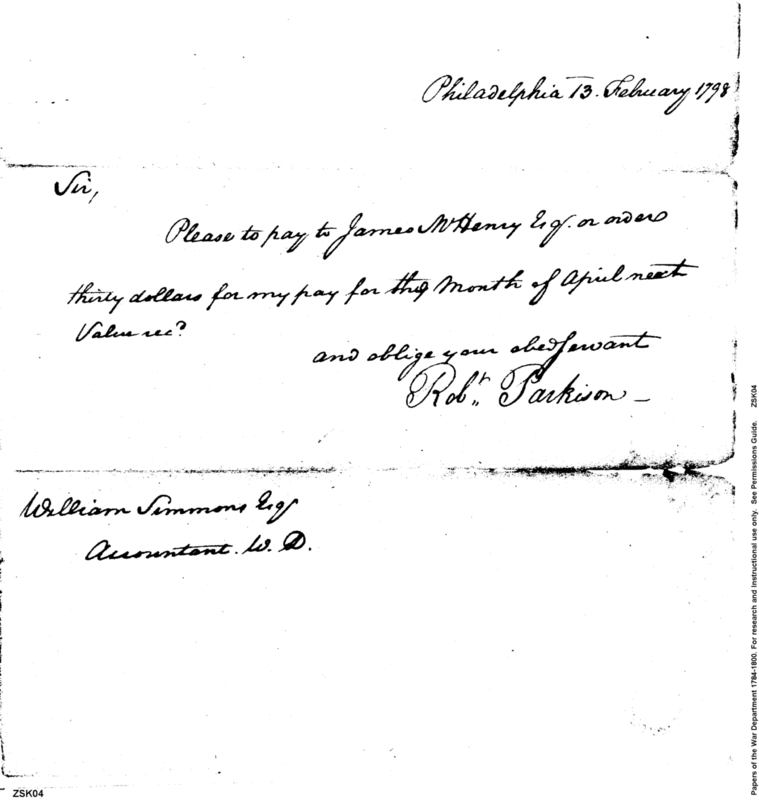 Philadelphia 13. February 1798
Sir,
Please to pay to James McHenry Esqr. or order
thirty dollars for my pay for the Month of April next
Value recd
and oblige your obed Servant
Robt. Parkison
William Simmons Esqr
Accountant. W. D.
ZSK04
Papers of the War Department 1784-1800. For research and instructional use only. See Permissions Guide. ZSK04